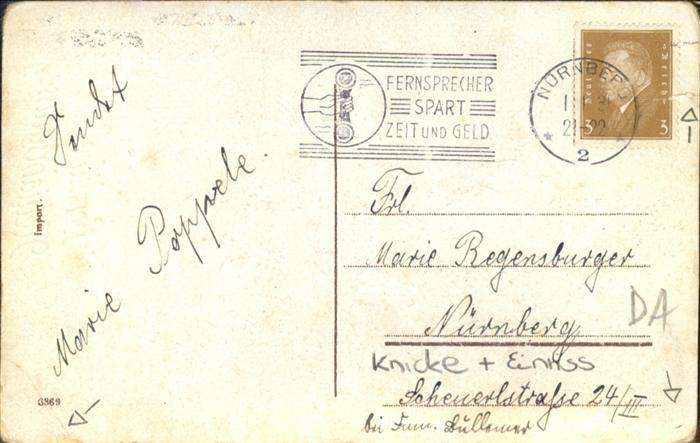 FERNSPRECHER
SPART
ZEIT UND GELD
NÜRNBERG
2
Deutsches Reich
3 3
Import.
6869
Marie Poppele.
Frl.
Marie Regensburger
Nürnberg
DA
Knicke + Einriss
Scheuerlstraße 24/III
bei Fam.